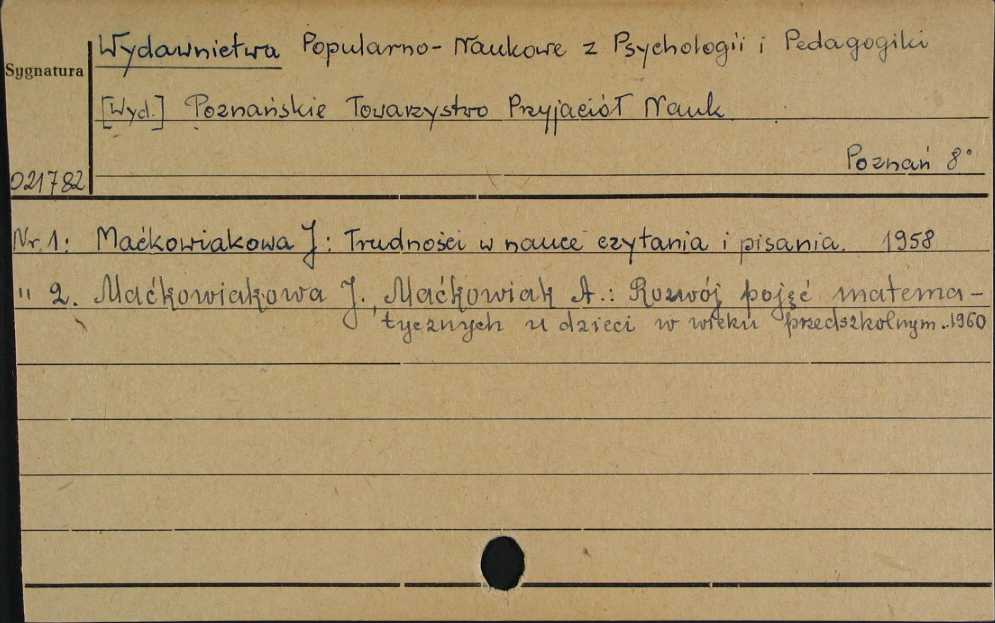 Wydawnictwa Popularno-Naukowe z Psychologii i Pedagogiki
Sygnatura
[Wyd.] Poznańskie Towarzystwo Przyjaciół Nauk
Poznań 8°
021782
Nr. 1: Maćkowiakowa J.: Trudności w nauce czytania i pisania. 1958
" 2. Maćkowiakowa J., Maćkowiak A.: Rozwój pojęć matema-
tycznych u dzieci w wieku przedszkolnym. 1960